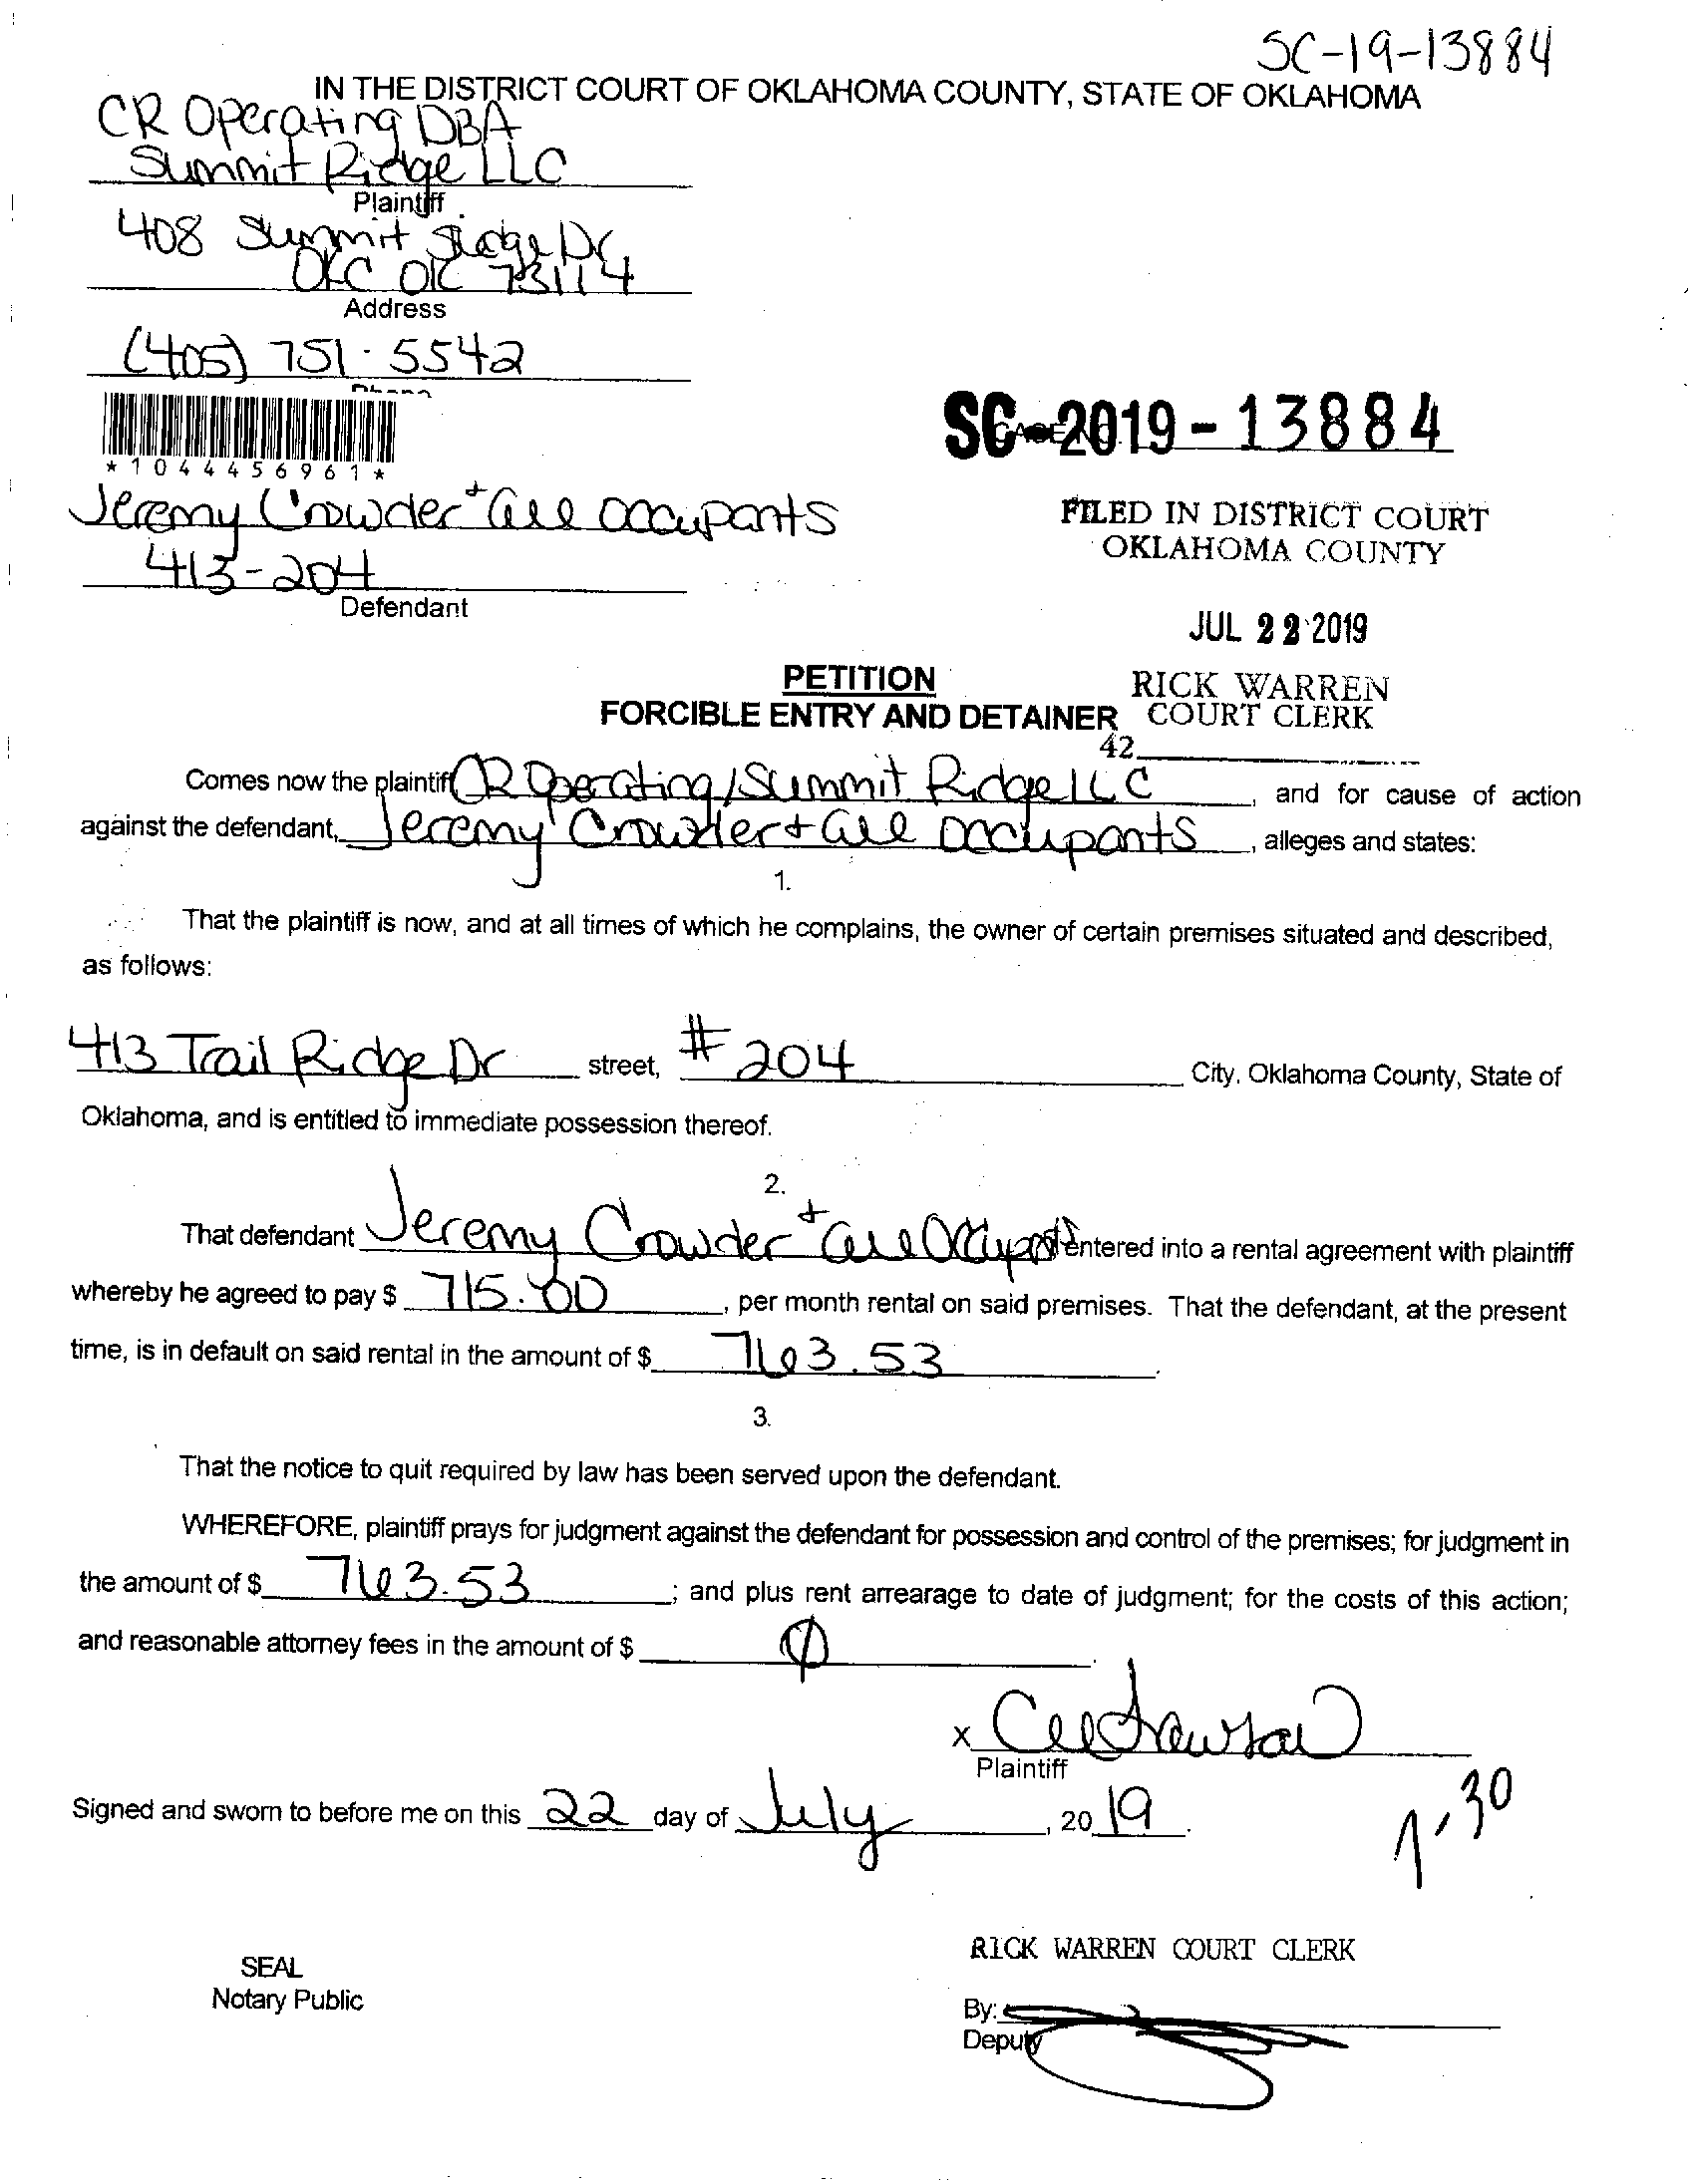 SC-19-13884
IN THE DISTRICT COURT OF OKLAHOMA COUNTY, STATE OF OKLAHOMA
CR Operating DBA
Summit Ridge LLC
Plaintiff
408 Summit Ridge Dr
OKC OK 73114
Address
(405) 751-5542
Phone
*1044456961*
SC-2019-13884
Jeremy Crowder + all occupants
413-204
Defendant
FILED IN DISTRICT COURT
OKLAHOMA COUNTY
JUL 22 2019
RICK WARREN
COURT CLERK
42
PETITION
FORCIBLE ENTRY AND DETAINER
Comes now the plaintiff CR Operating/Summit Ridge LLC, and for cause of action
against the defendant, Jeremy Crowder + all occupants, alleges and states:
1.
That the plaintiff is now, and at all times of which he complains, the owner of certain premises situated and described,
as follows:
413 Trail Ridge Dr street, # 204 City, Oklahoma County, State of
Oklahoma, and is entitled to immediate possession thereof.
2.
That defendant Jeremy Crowder + all Occupants entered into a rental agreement with plaintiff
whereby he agreed to pay $ 715.00, per month rental on said premises. That the defendant, at the present
time, is in default on said rental in the amount of $ 763.53.
3.
That the notice to quit required by law has been served upon the defendant.
WHEREFORE, plaintiff prays for judgment against the defendant for possession and control of the premises; for judgment in
the amount of $ 763.53; and plus rent arrearage to date of judgment; for the costs of this action;
and reasonable attorney fees in the amount of $ Ø.
x
Plaintiff
Signed and sworn to before me on this 22 day of July, 2019.
1-30
RICK WARREN COURT CLERK
SEAL
Notary Public
By:
Deputy